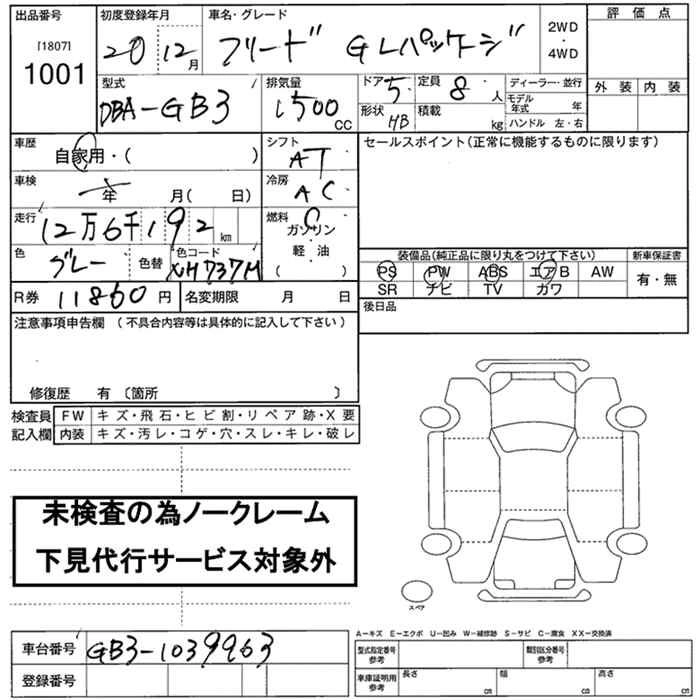 出品番号 初度登録年月 車名・グレード 評価点
[1807] 1001 20 12月 フリード Gパッケージ 2WD・4WD
型式 排気量 ドア 5 定員 8人 ディーラー・並行 外装 内装
DBA-GB3 1500cc 形状 HB 積載 kg モデル年式 年
ハンドル 左・右
車歴 自家用・( ) シフト AT セールスポイント(正常に機能するものに限ります)
車検 年 月( 日) 冷房 AC
走行 12万6千192km 燃料 ガソリン
軽・油
( )
色 グレー 色替 色コード NH737M 装備品(純正品に限り丸をつけて下さい) 新車保証書
PS PW ABS エアB AW 有・無
SR ナビ TV カワ
R券 11860円 名変期限 月 日 後日品
注意事項申告欄 (不具合内容等は具体的に記入して下さい)
修復歴 有〔箇所 〕
検査員 FW キズ・飛石・ヒビ割・リペア跡・X要
記入欄 内装 キズ・汚レ・コゲ・穴・スレ・キレ・破レ
未検査の為ノークレーム
下見代行サービス対象外
スペア
A-キズ E-エクボ U-凹み W-補修跡 S-サビ C-腐食 XX-交換済
車台番号 GB3-1039963 型式指定番号 参考 類別区分番号 参考
登録番号 車庫証明用 参考 長さ cm 幅 cm 高さ cm